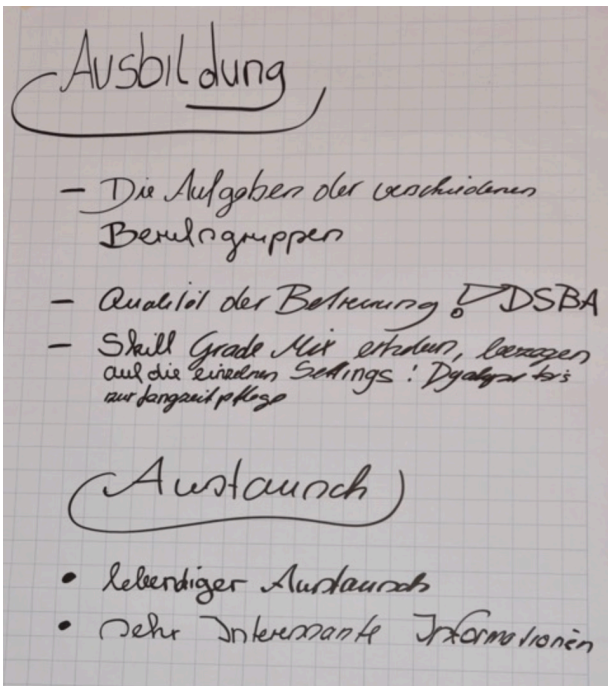 Ausbildung
- Die Aufgaben der verschiedenen
Berufsgruppen
- Qualität der Betreuung! DSBA
- Skill Grade Mix erheben, bezogen
auf die einzelnen Settings! Dyalyse bis
zur Langzeitpflege
Austausch
• lebendiger Austausch
• sehr Interessante Informationen